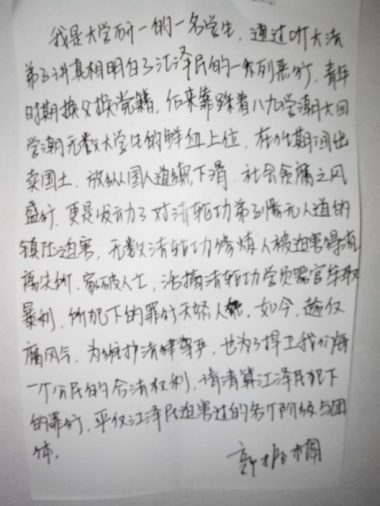 我是大学研一的一名学生，通过听大法
弟子讲真相明白了江泽民的一系列恶行，青年
时期换父换党籍，后来靠踩着八九学潮大回
学潮无数大学生的鲜血上位，在位期间出
卖国土，放纵国人道德下滑，社会贪腐之风
盛行，更是发动了对法轮功弟子惨无人道的
镇压迫害，无数法轮功修炼人被迫害得流
离失所，家破人亡，活摘法轮功学员器官牟取
暴利，所犯下的罪行天怒人怨，如今，
腐风气，为维护法律尊严，也为了捍卫我们每
一个公民的合法权利，请清算江泽民犯下
的罪行，平反江泽民迫害过的各个阶级与团
体。